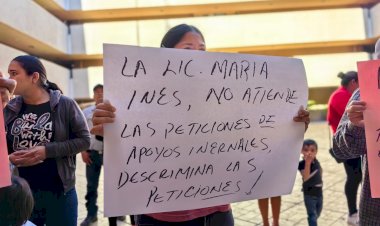 LA LIC. MARIA
INES, NO ATIENDE
LAS PETICIONES DE
APOYOS INERNALES,
DESCRIMINA LAS
PETICIONES!